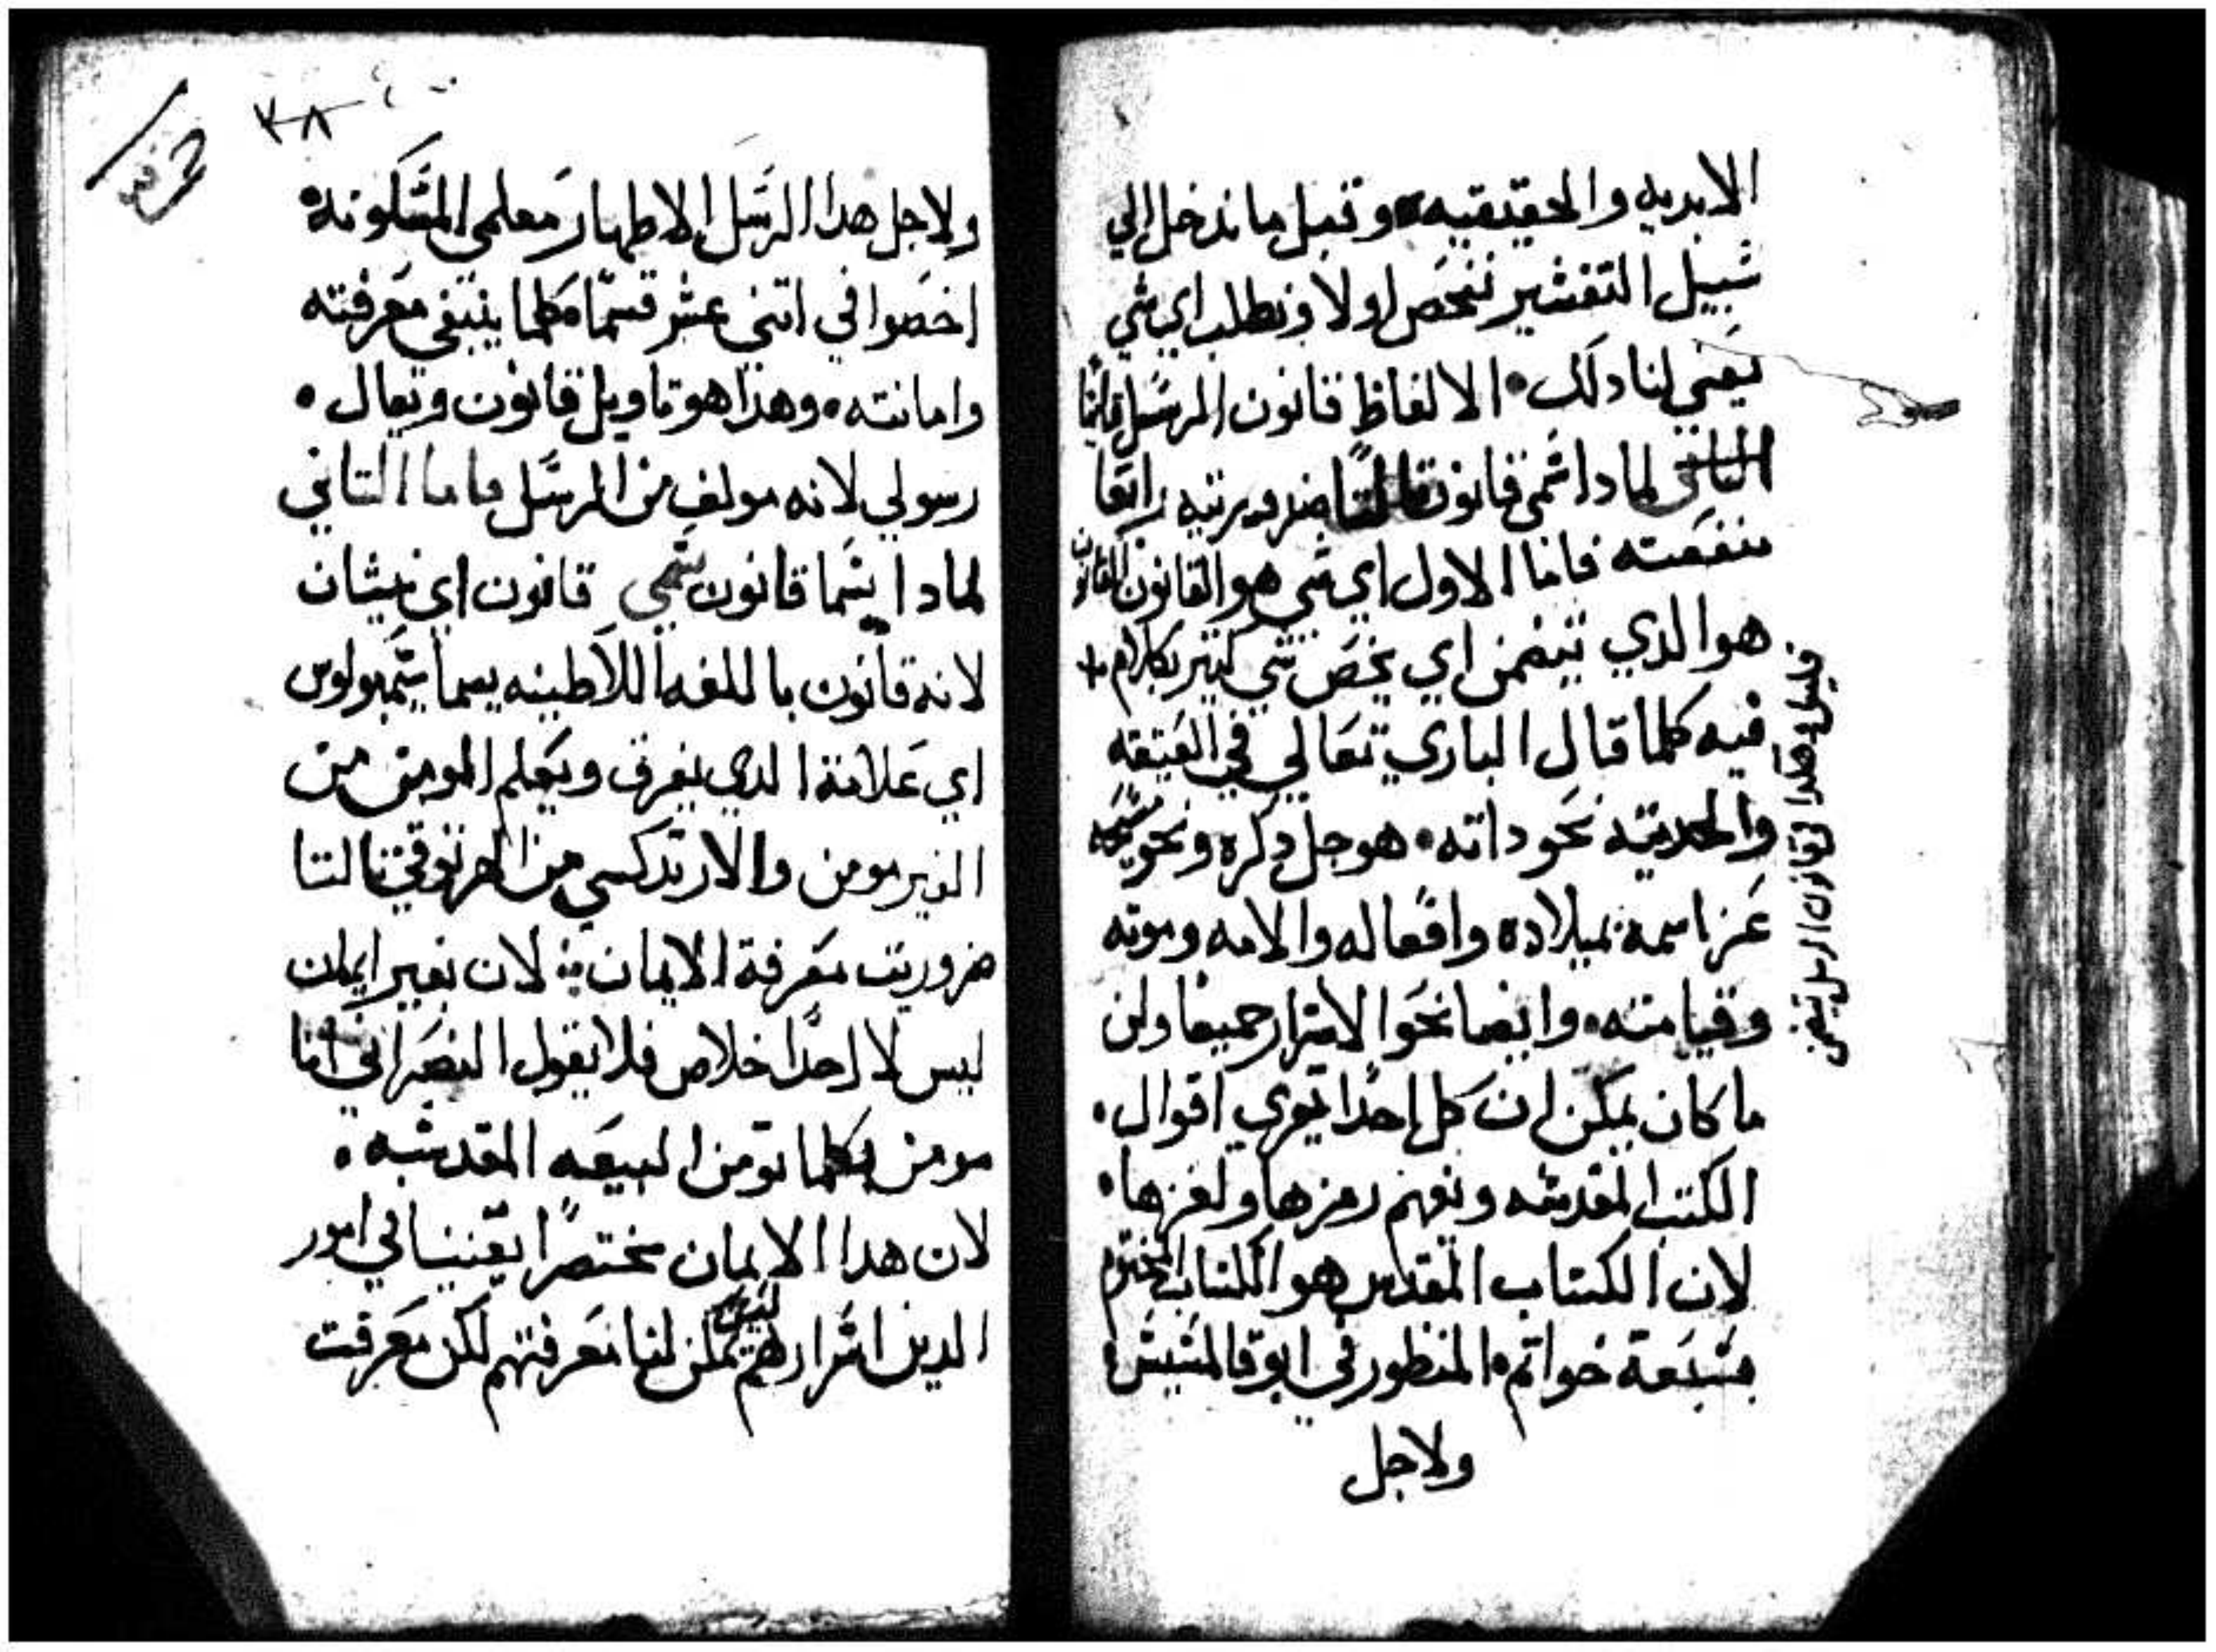 الابديه والحقيقيه وقبل ما ندخل الي
شبيل التفشير نفحص اولا ونطلب اي شي
يعني لنا دلك • الالفاظ قانون الرسل ثانيًا
لمادا شمي قانون ثالتًا ضروريته رابعًا
منفعته فاما الاول اي شي هو القانون القانون
هو الدي يتضمن اي يخص شي كتير بكلام +
قليل وهكدا قانون الرسل تضمن
فيه كلما قال الباري تعالي في العتيقه
والحديته نحو داته • هو جل دكره ونحو
عز اسمه بميلاده وافعاله والامه وموته
وقيامته • وايضا نحو الاشرار جميعا ولن
ما كان يمكن ان كل احدًا يقري اقوال •
الكتب المقدشه ويفهم رمزها ولغزها •
لان الكتاب المقدس هو الكتاب المختوم
بشبعة خواتم • المنظور في ابوقالمشيش •
ولاجل
٣٨
ولاجل هدا الرسل الاطهار معلمي المشكونه •
اخصوا في اتني عشر قسمًا كلما ينبغي معرفته
وامانته • وهذا هو تاويل قانون ويقال •
رسولي لانه مولف من الرسل فاما التاني
لمادا يشما قانون شمي قانون اي نيشان
لانه قانون باللغه اللاطينه يسما شمبولوس
اي علامة الدي يفرق ويعلم المومن من
الغير مومن والارتدكسي من الهرتوقي تالتا
ضروريت معرفة الايمان • لان بغير ايمان
ليس لاحدًا خلاص فلا يقول النصراني انا
مومن بكلما تومن البيعه المقدشه •
لان هدا الايمان مختصرًا يقيننا في امور
الدين اشرارهم ليس يمكن لنا معرفتهم لكن معرفت